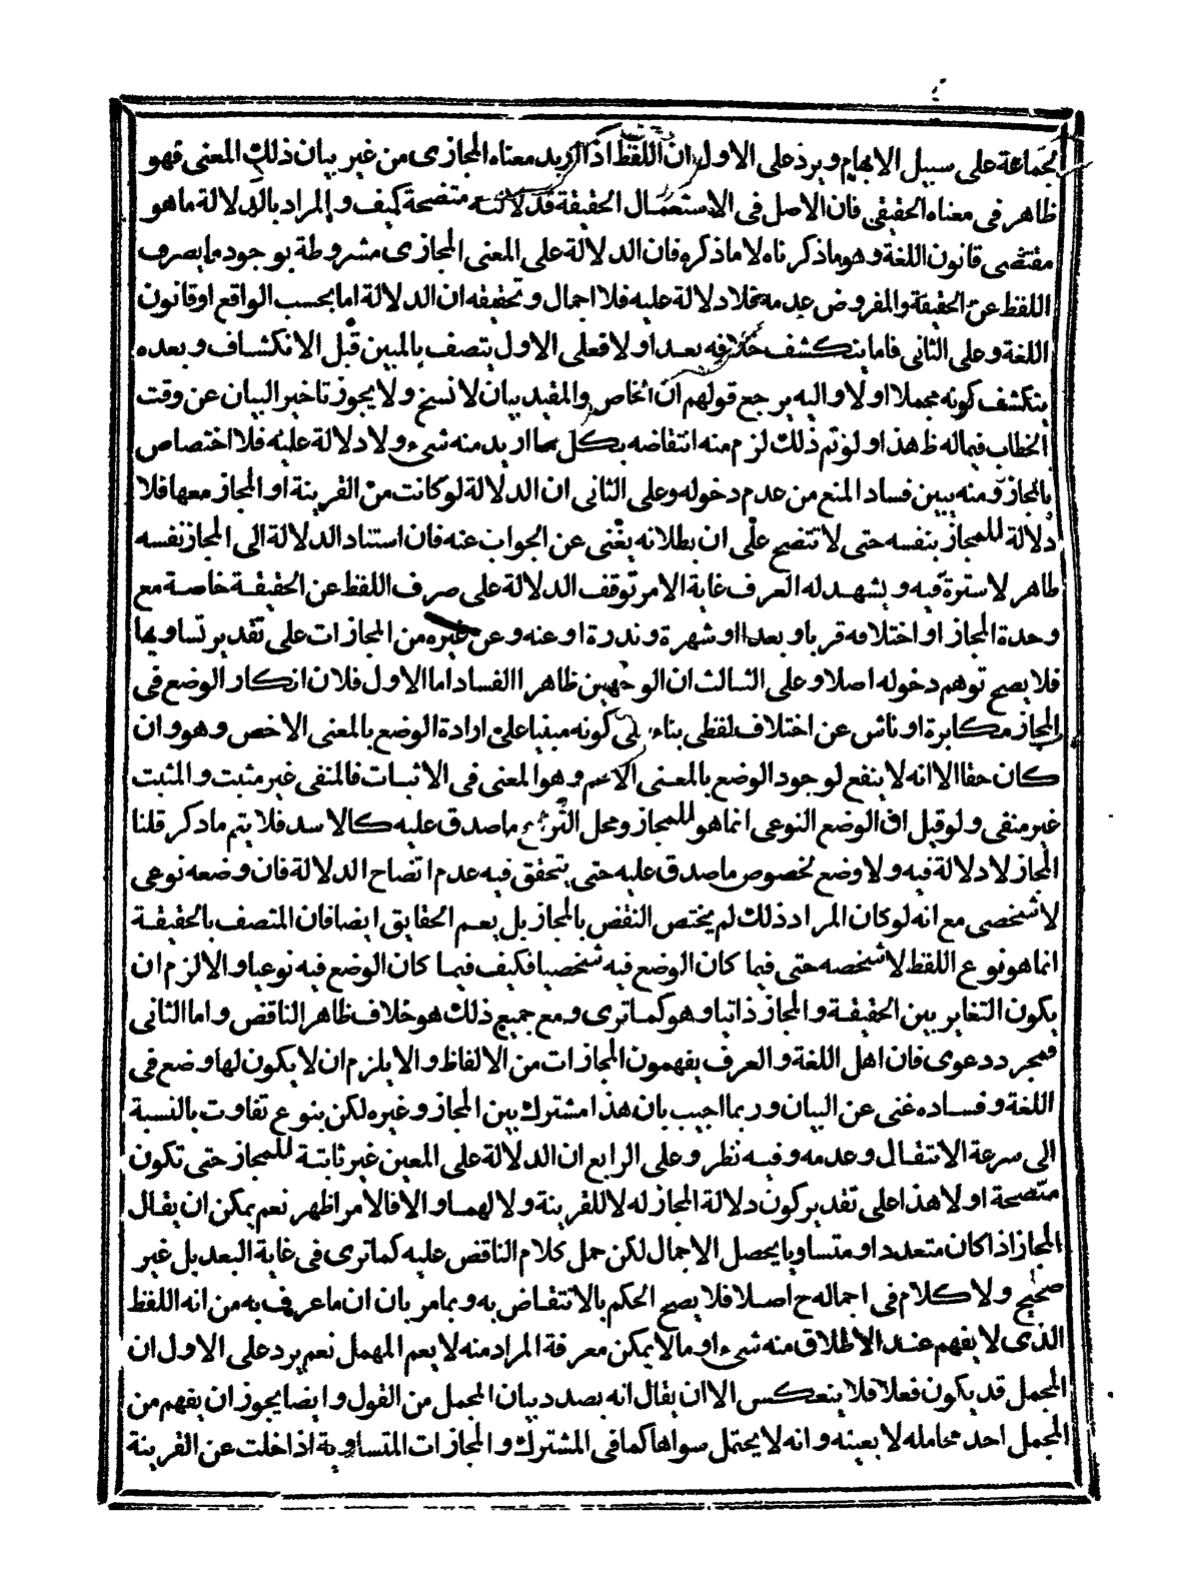 بجماعة على سبيل الابهام ويرد على الاول ان اللفظ اذا اريد معناه المجازى من غير بيان ذلك المعنى فهو
ظاهر فى معناه الحقيقى فان الاصل فى الاستعمال الحقيقة قد لالته متضحة كيف والمراد بالدلالة ماهو
مقتضى قانون اللغة وهو ماذكرناه لا ماذكره فان الدلالة على المعنى المجازى مشروطة بوجود مايصرف
اللفظ عن الحقيقة والمفروض عدمه فلا دلالة عليه فلا اجمال وتحقيقه ان الدلالة اما بحسب الواقع او قانون
اللغة وعلى الثانى فاما ينكشف خلافه بعد او لا فعلى الاول يتصف بالمبين قبل الانكشاف وبعده
ينكشف كونه مجملا اولا واليه يرجع قولهم ان الخاص والمقيد بيان لا نسخ ولا يجوز تاخير البيان عن وقت
الخطاب فيماله ظ هذا ولو تم ذلك لزم منه انتقاضه بكل ما اريد منه شىء ولا دلالة عليه فلا اختصاص
بالمجاز ومنه يبين فساد المنع من عدم دخوله وعلى الثانى ان الدلالة لو كانت من القرينة او المجاز معها فلا
دلالة للمجاز بنفسه حتى لا تتضح على ان بطلانه يغنى عن الجواب عنه فان استناد الدلالة الى المجاز نفسه
ظاهر لا سترة فيه ويشهد له العرف غاية الامر توقف الدلالة على صرف اللفظ عن الحقيقة خاصة مع
وحدة المجاز او اختلافه قربا وبعدا او شهرة وندرة او عنه وعن غيره من المجازات على تقدير تساويها
فلا يصح توهم دخوله اصلا وعلى الثالث ان الوجهين ظاهرا الفساد اما الاول فلان انكار الوضع فى
المجاز مكابرة او ناش عن اختلاف لفظى بناء على كونه مبنيا على ارادة الوضع بالمعنى الاخص وهو وان
كان حقا الا انه لا ينفع لوجود الوضع بالمعنى الاعم وهو المعنى فى الاثبات فالمنفى غير مثبت والمثبت
غير منفى ولو قيل ان الوضع النوعى انما هو للمجاز ومحل النزاع ماصدق عليه كالاسد فلا يتم ماذكر قلنا
المجاز لا دلالة فيه ولا وضع بخصوص ماصدق عليه حتى يتحقق فيه عدم اتضاح الدلالة فان وضعه نوعى
لا شخصى مع انه لو كان المراد ذلك لم يختص النقض بالمجاز بل يعم الحقايق ايضا فان المتصف بالحقيقة
انما هو نوع اللفظ لا شخصه حتى فيما كان الوضع فيه شخصيا فكيف فيما كان الوضع فيه نوعيا والا لزم ان
يكون التغاير بين الحقيقة والمجاز ذاتيا وهو كما ترى ومع جميع ذلك هو خلاف ظاهر الناقض واما الثانى
فمجرد دعوى فان اهل اللغة والعرف يفهمون المجازات من الالفاظ والا يلزم ان لا يكون لها وضع فى
اللغة وفساده غنى عن البيان وربما اجيب بان هذا مشترك بين المجاز وغيره لكن بنوع تفاوت بالنسبة
الى سرعة الانتقال وعدمه وفيه نظر وعلى الرابع ان الدلالة على المعين غير ثابتة للمجاز حتى تكون
متضحة او لا هذا على تقدير كون دلالة المجاز له لا للقرينة ولا لهما والا فالامر اظهر نعم يمكن ان يقال
المجاز اذا كان متعددا ومتساويا يحصل الاجمال لكن حمل كلام الناقض عليه كما ترى فى غاية البعد بل غير
صحيح ولا كلام فى اجماله ح اصلا فلا يصح الحكم بالانتقاض به وبما مر بان ان ماعرف به من انه اللفظ
الذى لا يفهم عند الاطلاق منه شىء او مالا يمكن معرفة المراد منه لا يعم المهمل نعم يرد على الاول ان
المجمل قد يكون فعلا فلا ينعكس الا ان يقال انه بصدد بيان المجمل من القول وايضا يجوز ان يفهم من
المجمل احد محامله لا بعينه وانه لا يحتمل سواها كما فى المشترك والمجازات المتساوية اذا خلت عن القرينة